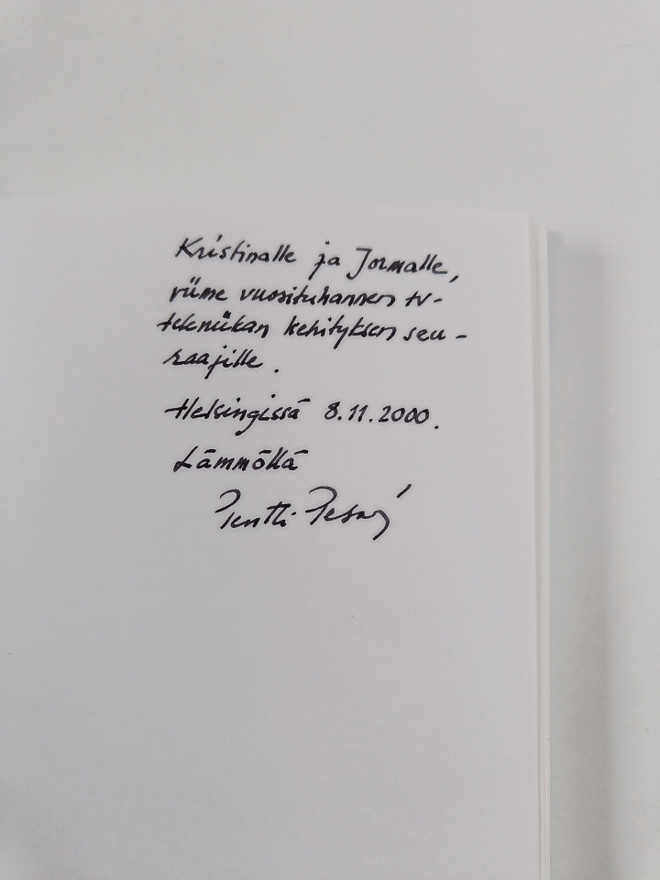 Kristinalle ja Jormalle,
viime vuosituhannen tv-
tekniikan kehityksen seu-
raajille.
Helsingissä 8.11.2000.
Lämmöllä
Pentti